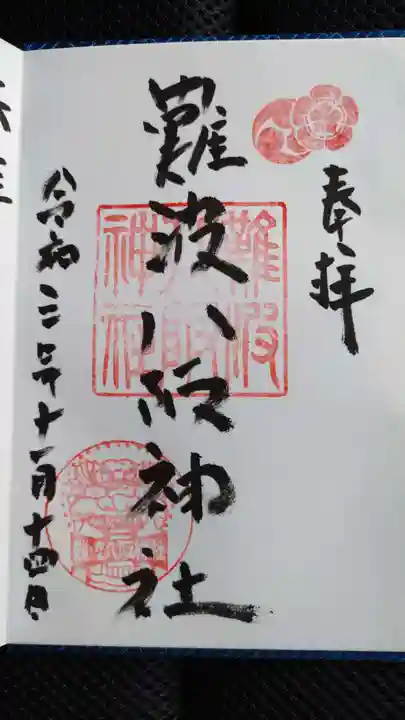 奉拝
難波八阪神社
難波八阪神社
令和三年十一月十四日